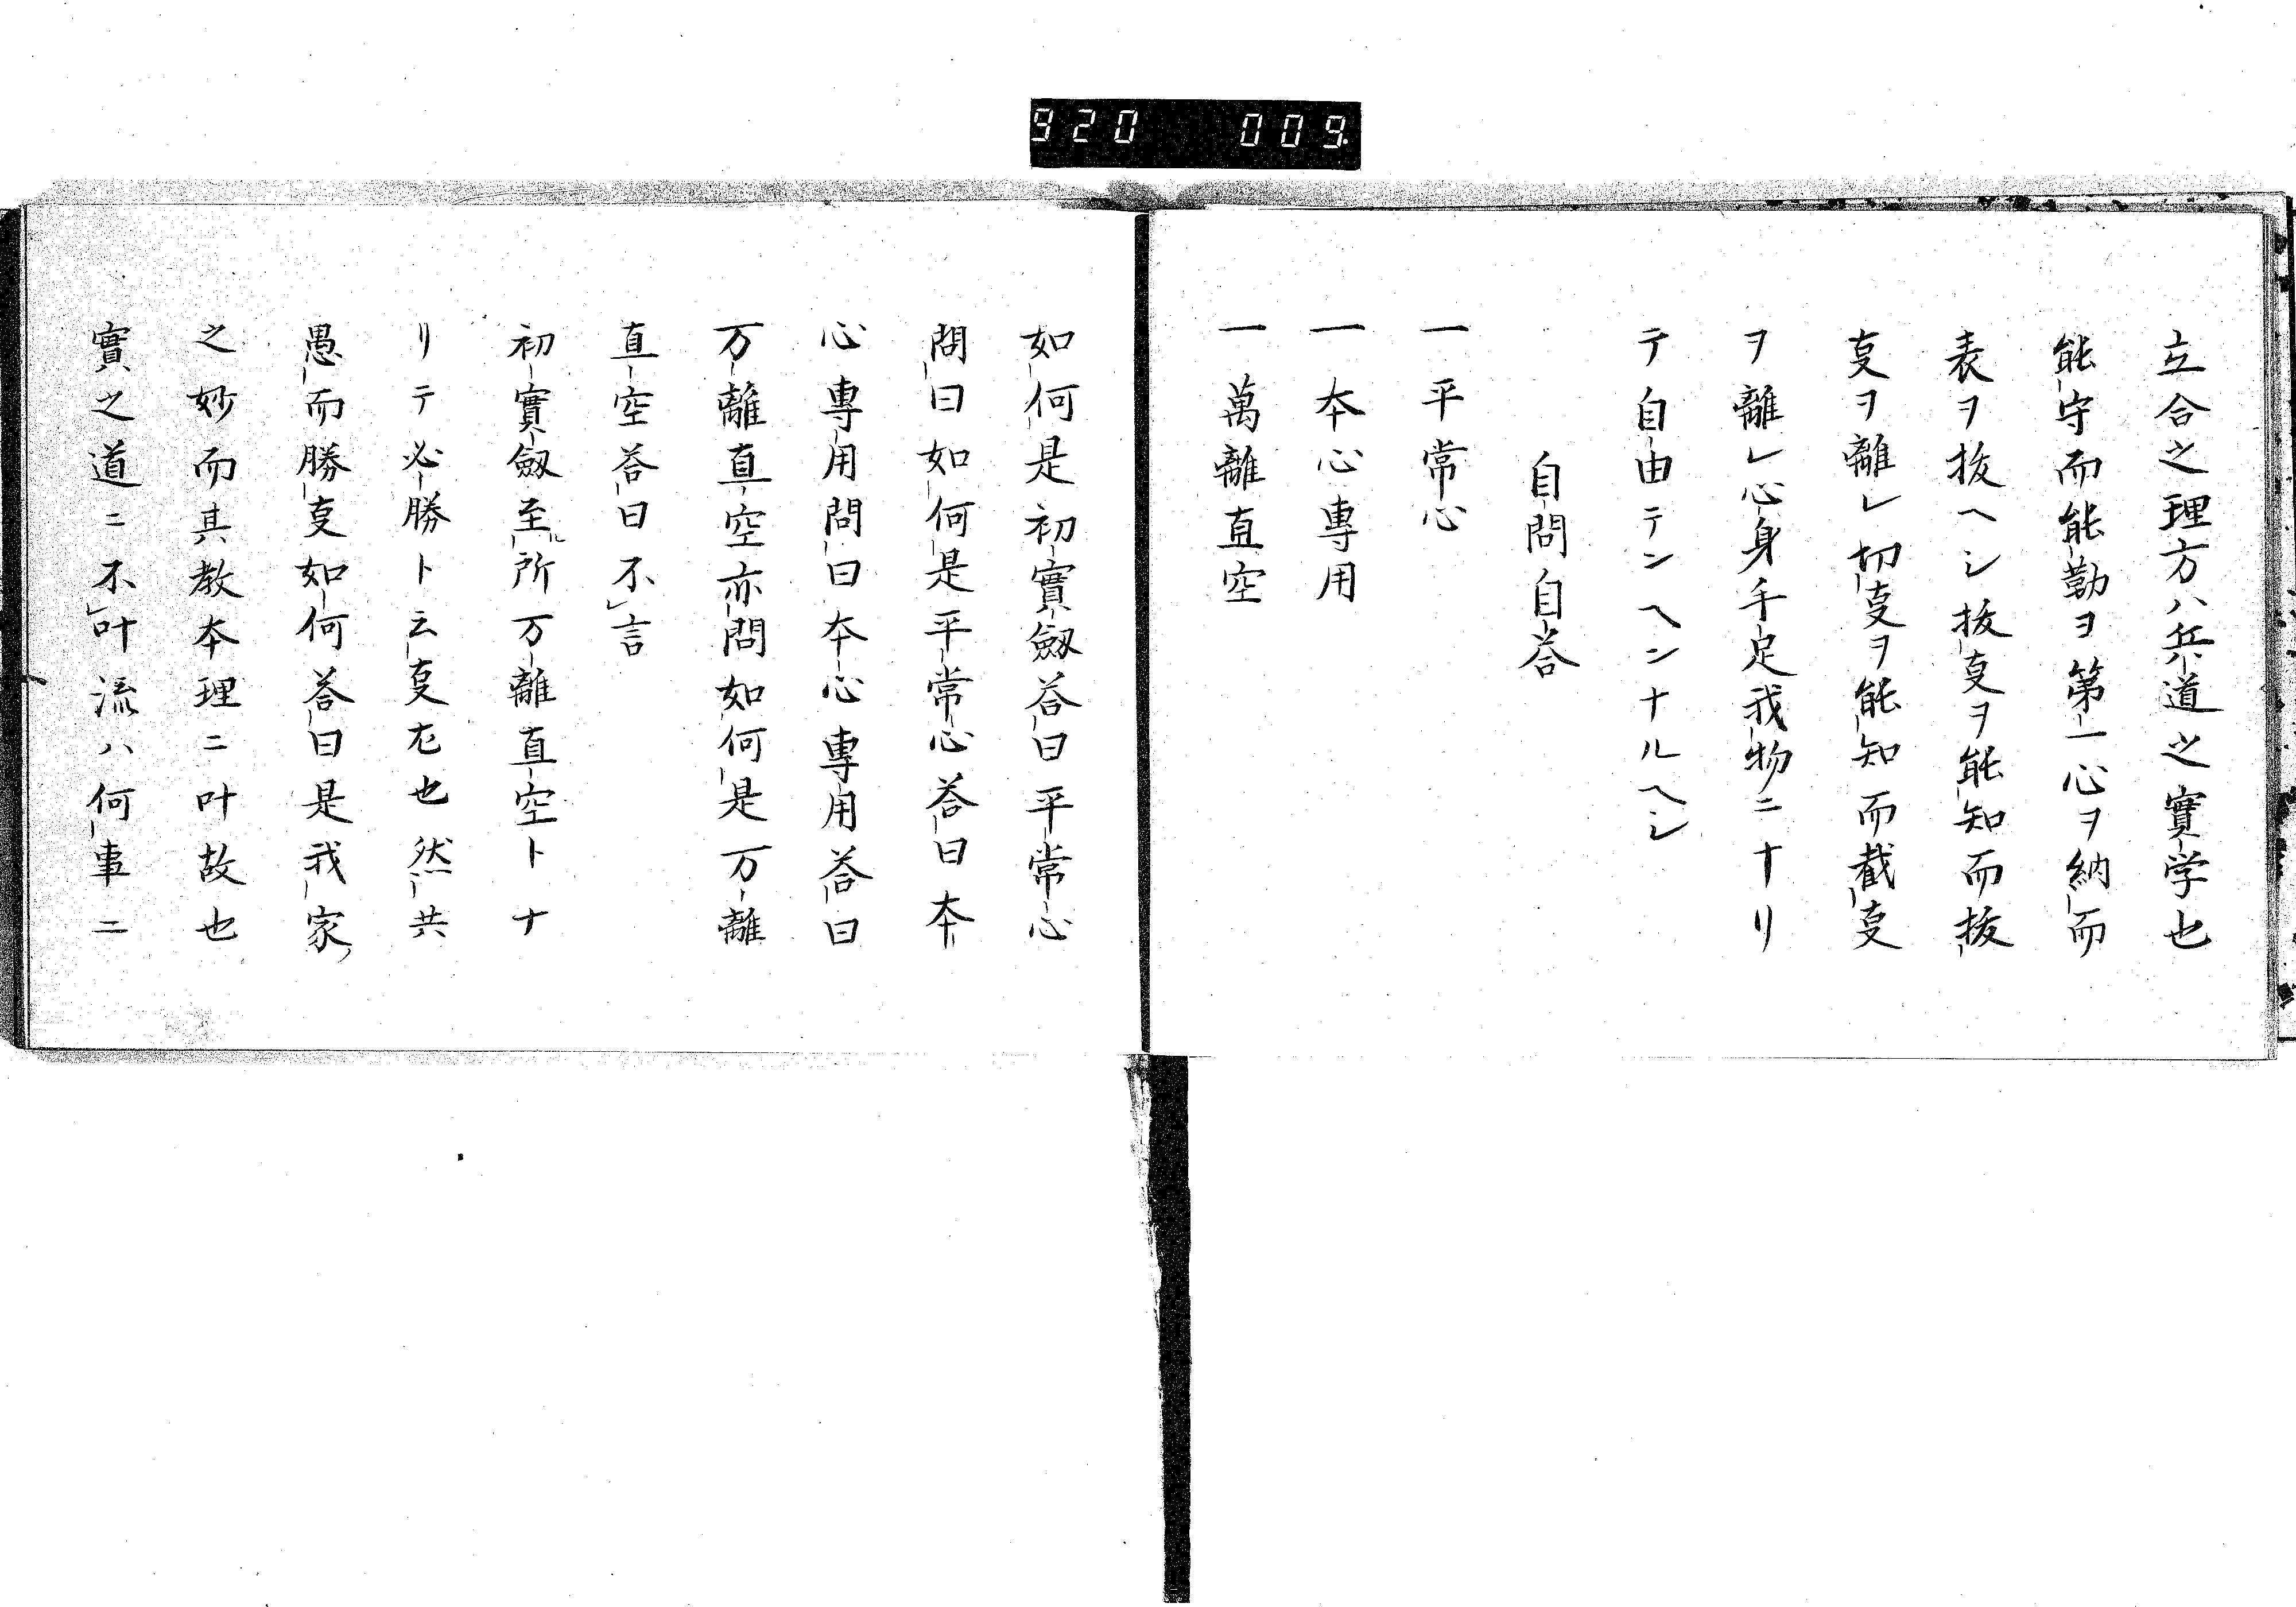 920 009
立合之理方ハ兵道之實学也
能守而能勤ヲ第一心ヲ納而
表ヲ抜ヘシ抜支ヲ能知而抜
支ヲ離レ切支ヲ能知而截支
ヲ離レ心身手足我物ニナリ
テ自由テンヘンナルヘシ
自問自荅
一平常心
一本心專用
一萬離直空
如何是初實劔荅曰平常心
問曰如何是平常心荅曰本
心專用問曰本心專用荅曰
万離直空亦問如何是万離
直空荅曰不レ言
初實劔至ル所万離直空トナ
リテ必勝ト云支尤也然共
愚而勝支如何荅曰是我家
之妙而其教本理ニ叶故也
實之道ニ不レ叶流ハ何事ニ